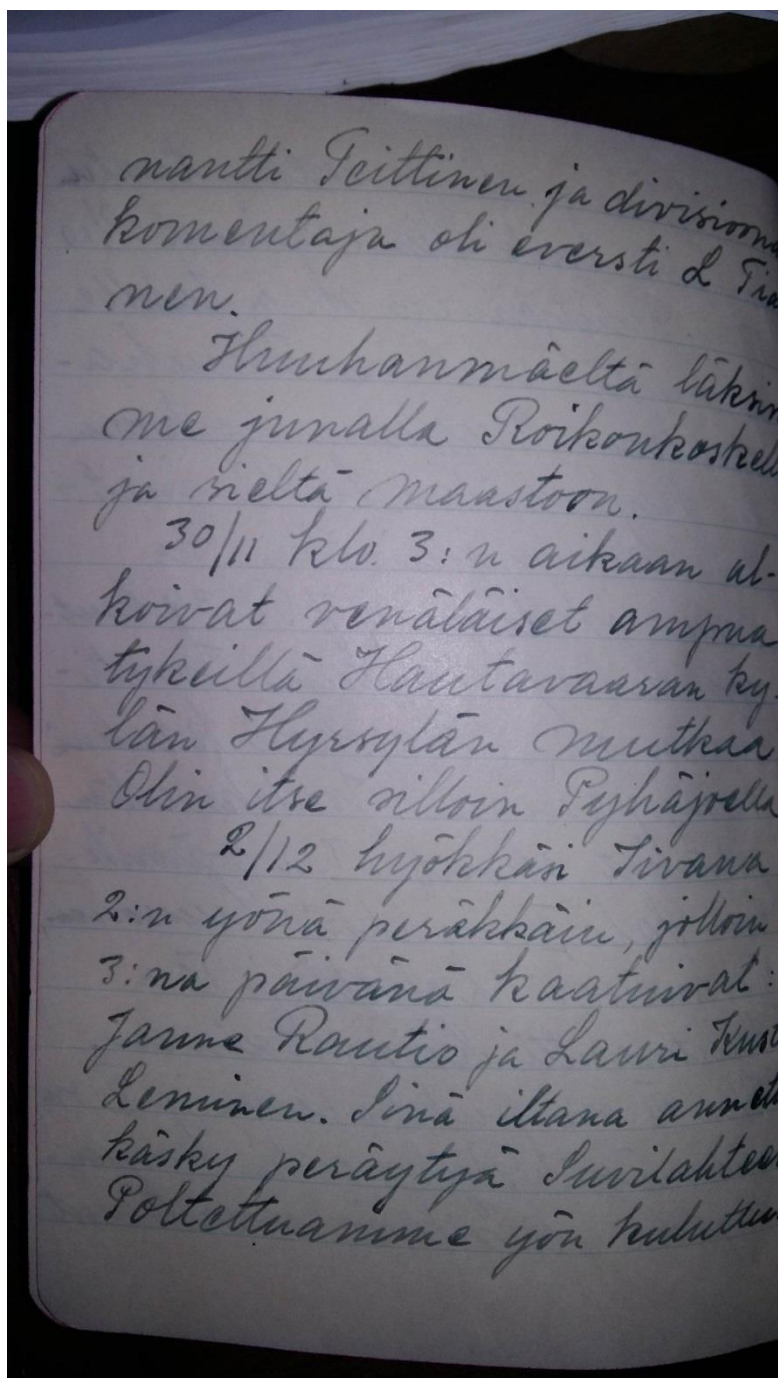 nantti Teittinen ja divisioona
komentaja oli eversti L Tia
nen.
Huuhanmäeltä läksim
me junalla Roikonkoskell
ja sieltä maastoon.
30/11 klo. 3:n aikaan al-
koivat venäläiset ampua
tykeillä Hautavaaran ky-
län Hyrsylän mutkaa
Olin itse silloin Pyhäjoella
2/12 hyökkäsi Iivana
2:n yönä peräkkäin, jolloin
3:na päivänä kaatuivat:
Janne Rautio ja Lauri Kust
Leminen. Sinä iltana annett
käsky peräytyä Suvilahteen
Poltettuamme yön kuluttua